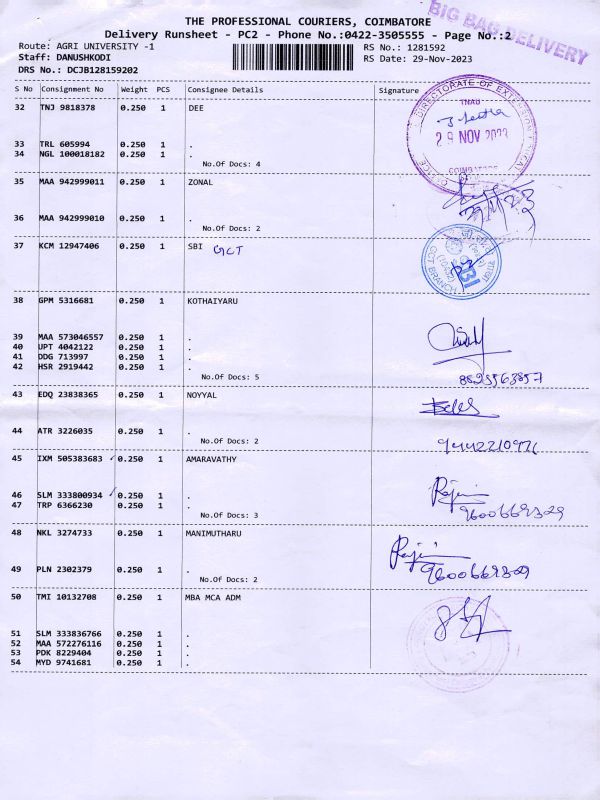 BIG BAG DELIVERY
THE PROFESSIONAL COURIERS, COIMBATORE
Delivery Runsheet - PC2 - Phone No.:0422-3505555 - Page No.:2
Route: AGRI UNIVERSITY -1 RS No.: 1281592
Staff: DANUSHKODI RS Date: 29-Nov-2023
DRS No.: DCJB128159202
S No Consignment No Weight PCS Consignee Details Signature
32 TNJ 9818378 0.250 1 DEE
DIRECTORATE OF EXTENSION
TNAU
29 NOV 2023
COIMBATORE
33 TRL 605994 0.250 1 .
34 NGL 100018182 0.250 1 .
No.Of Docs: 4
35 MAA 942999011 0.250 1 ZONAL
36 MAA 942999010 0.250 1 .
No.Of Docs: 2
37 KCM 12947406 0.250 1 SBI GCT
SBI
GCT BRANCH
38 GPM 5316681 0.250 1 KOTHAIYARU
39 MAA 573046557 0.250 1 .
40 UPT 4042122 0.250 1 .
41 DDG 713997 0.250 1 .
42 HSR 2919442 0.250 1 .
No.Of Docs: 5
43 EDQ 23838365 0.250 1 NOYYAL
44 ATR 3226035 0.250 1 .
No.Of Docs: 2
45 IXM 505383683 0.250 1 AMARAVATHY
46 SLM 333800934 0.250 1 .
47 TRP 6366230 0.250 1 .
No.Of Docs: 3
9600669329
48 NKL 3274733 0.250 1 MANIMUTHARU
49 PLN 2302379 0.250 1 .
9600669329
No.Of Docs: 2
50 TMI 10132708 0.250 1 MBA MCA ADM
51 SLM 333836766 0.250 1 .
52 MAA 572276116 0.250 1 .
53 PDK 8229404 0.250 1 .
54 MYD 9741681 0.250 1 .